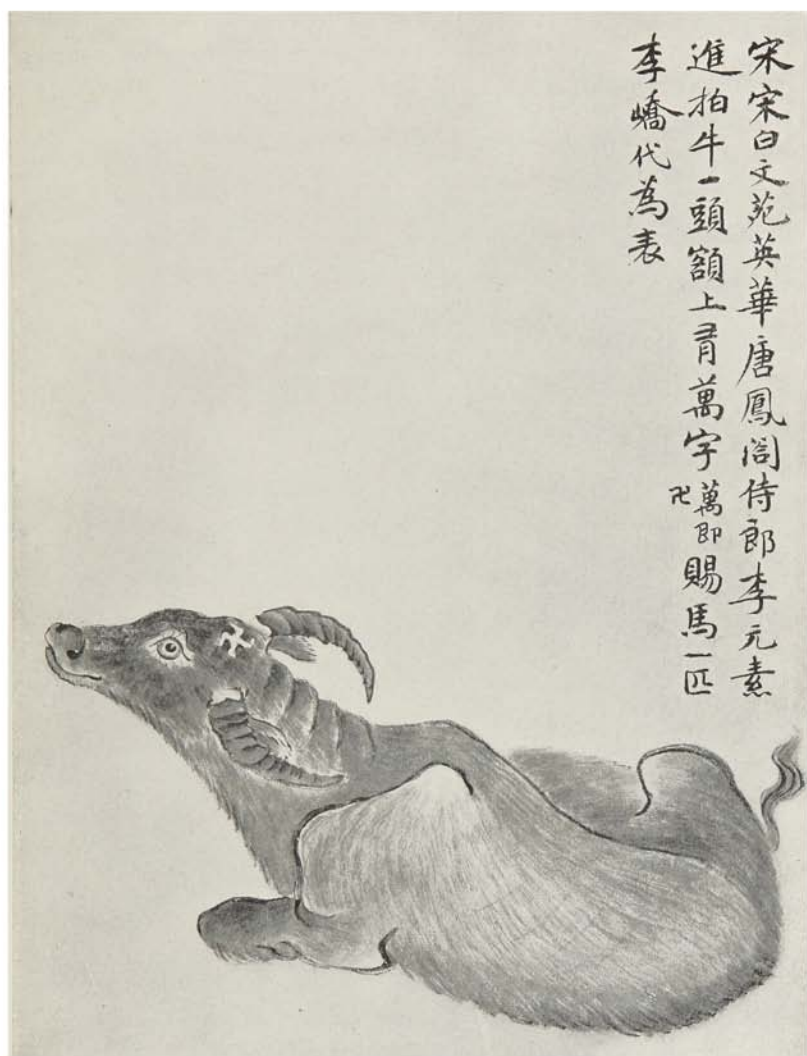 宋宋白文苑英華唐鳳閤侍郎李元素
進拍牛一頭額上有萬字萬即卍賜馬一匹
李嶠代為表